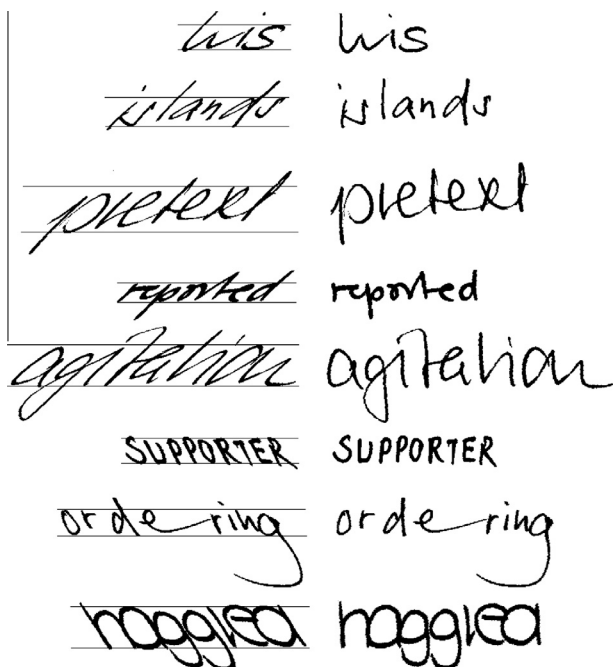 his his
islands islands
pretext pretext
reported reported
agitation agitation
SUPPORTER SUPPORTER
ordering ordering